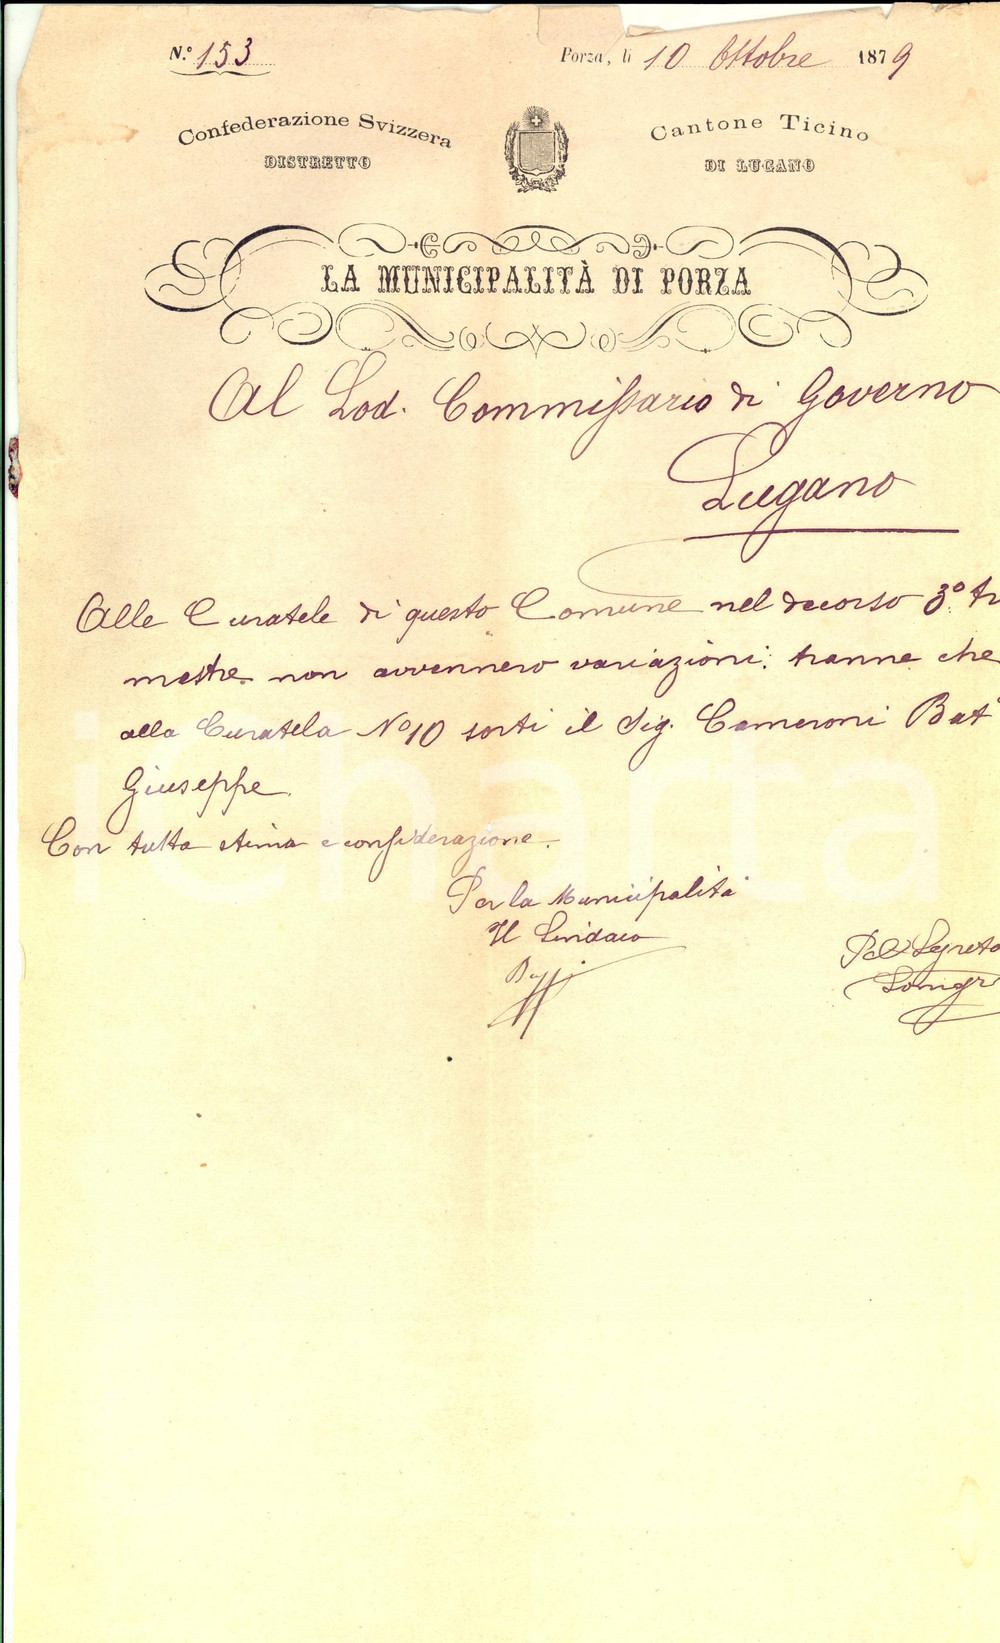 N.º 153
Porza, li 10 Ottobre 1879
Confederazione Svizzera
DISTRETTO
Cantone Ticino
DI LUGANO
LA MUNICIPALITÀ DI PORZA
Al Lod. Commissario di Governo
Lugano
Alle Curatele di questo Comune nel decorso 3º tr
mestre non avvennero variazioni; tranne che
alla Curatela Nº 10 sorti il Sig. Cameroni Bat
Giuseppe.
Con tutta stima e considerazione.
Per la Municipalità
Il Sindaco
Pel Segreta